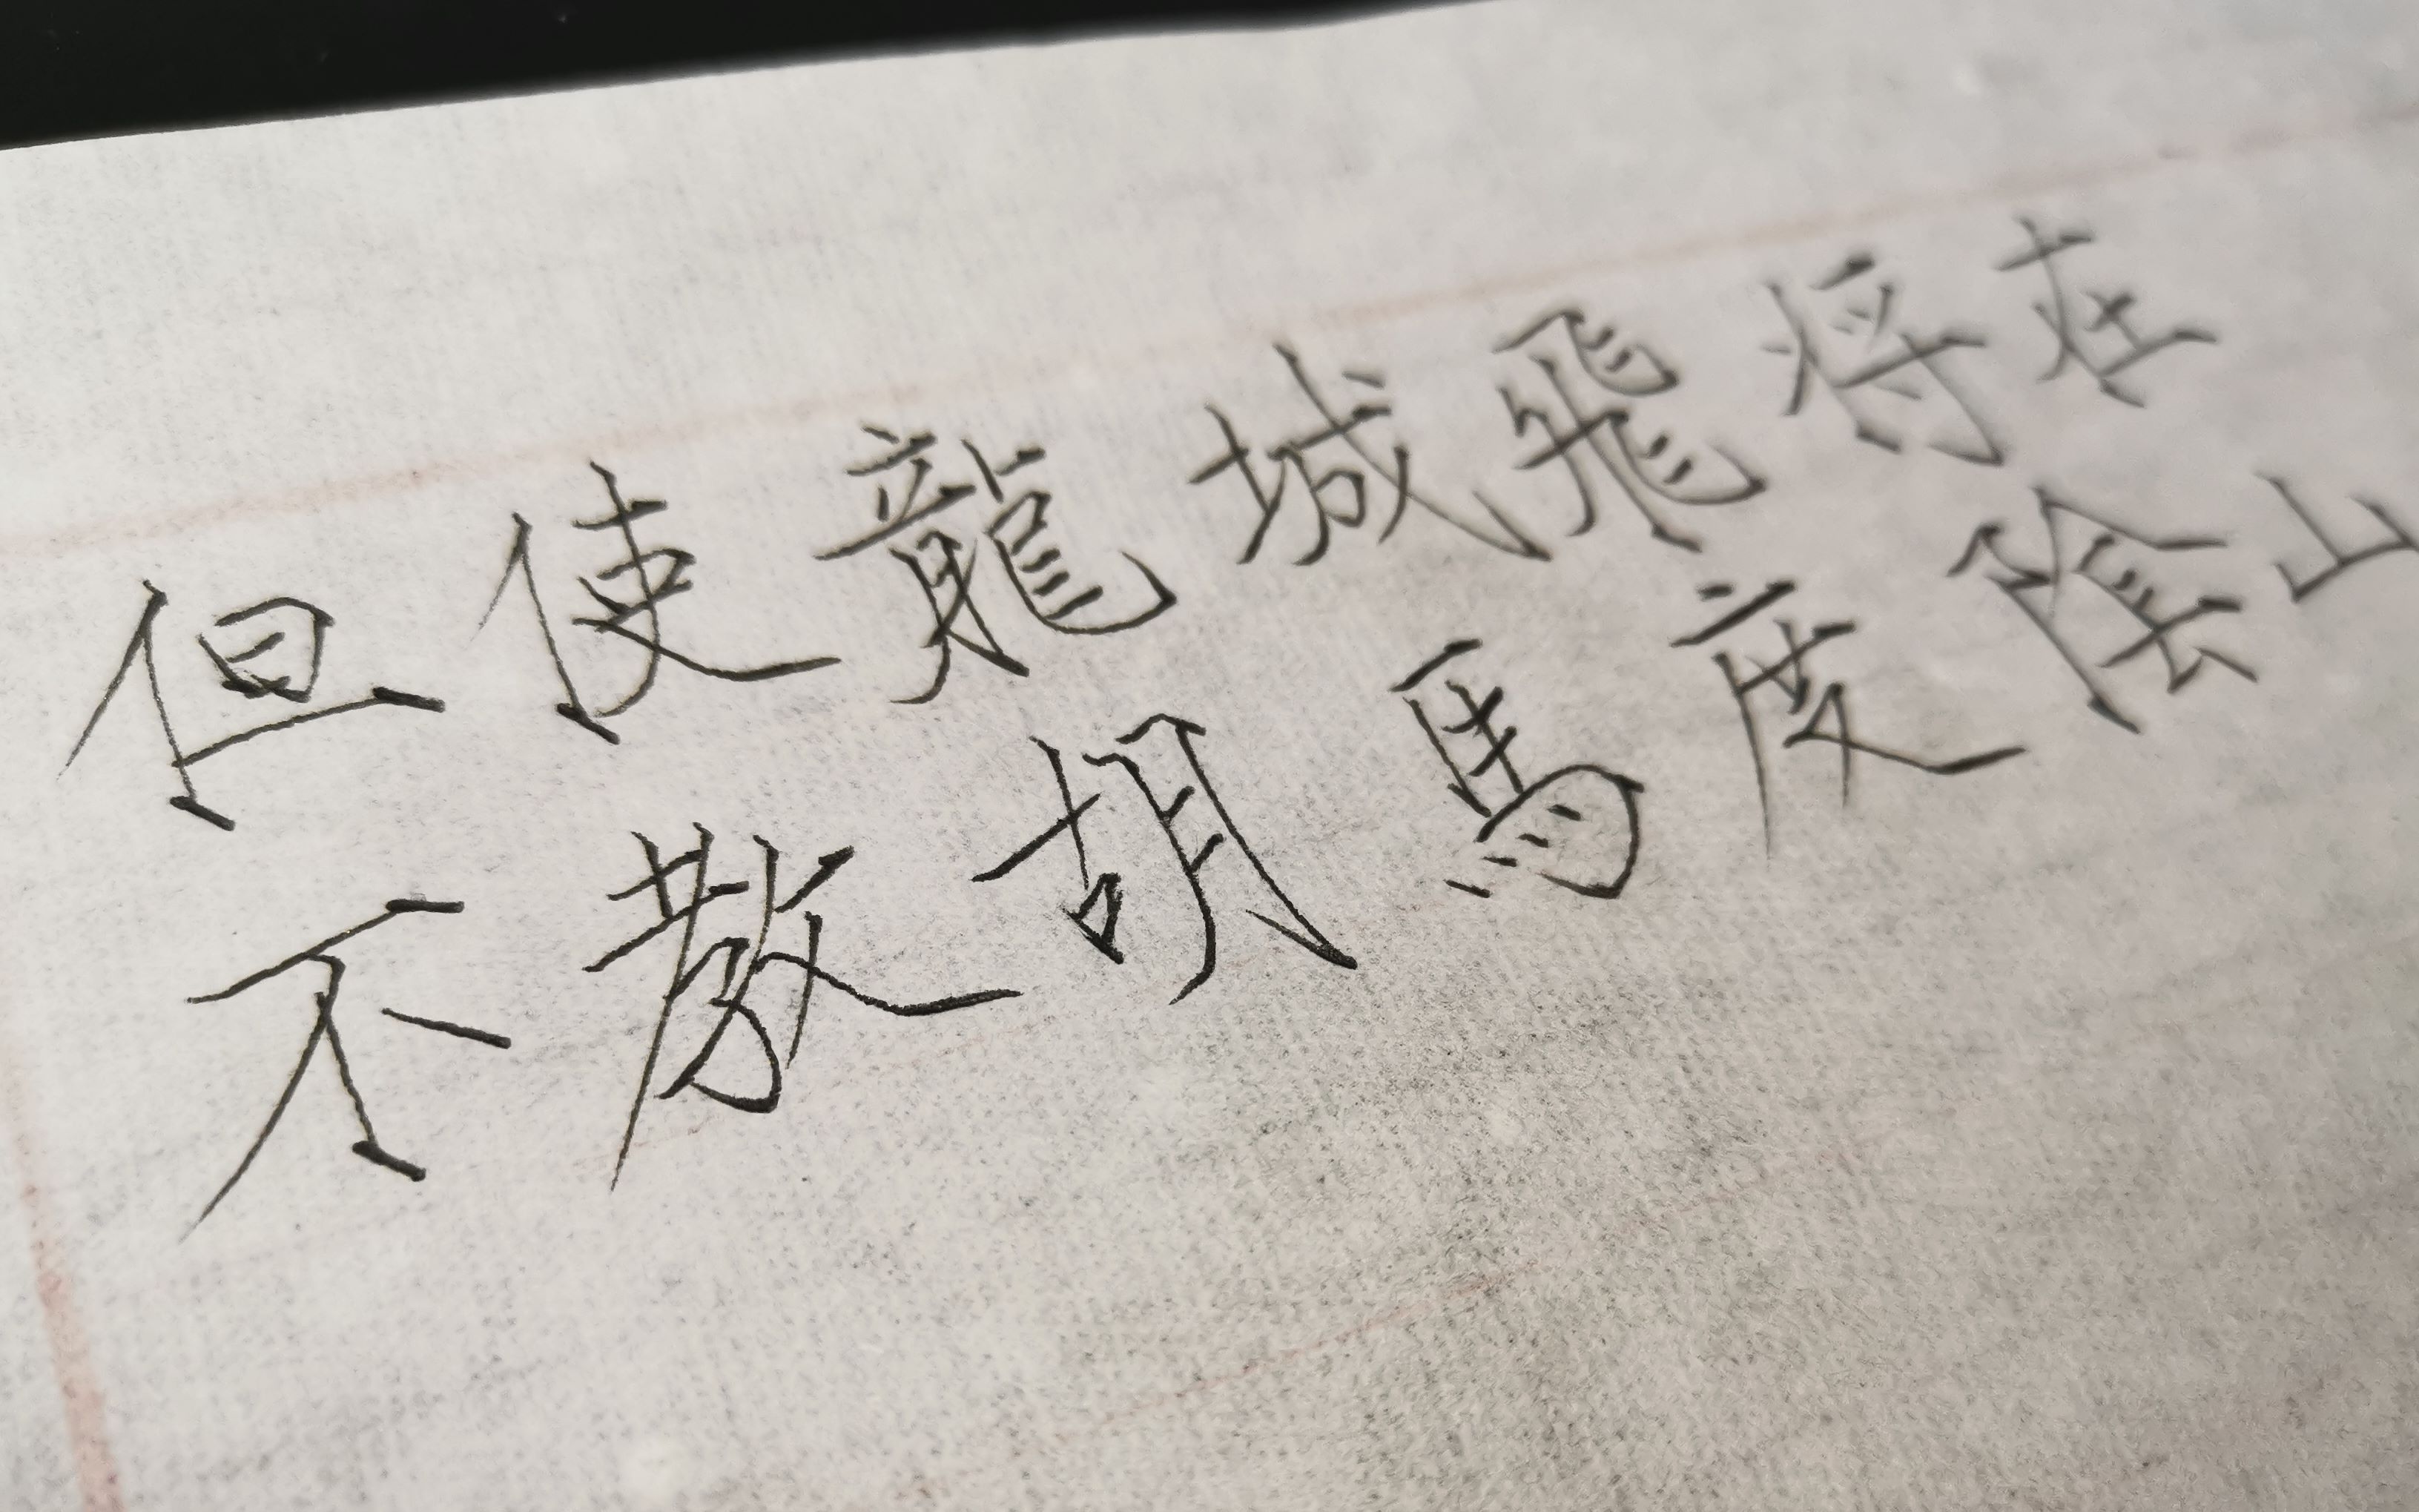 但使龍城飛将在
不教胡馬度陰山